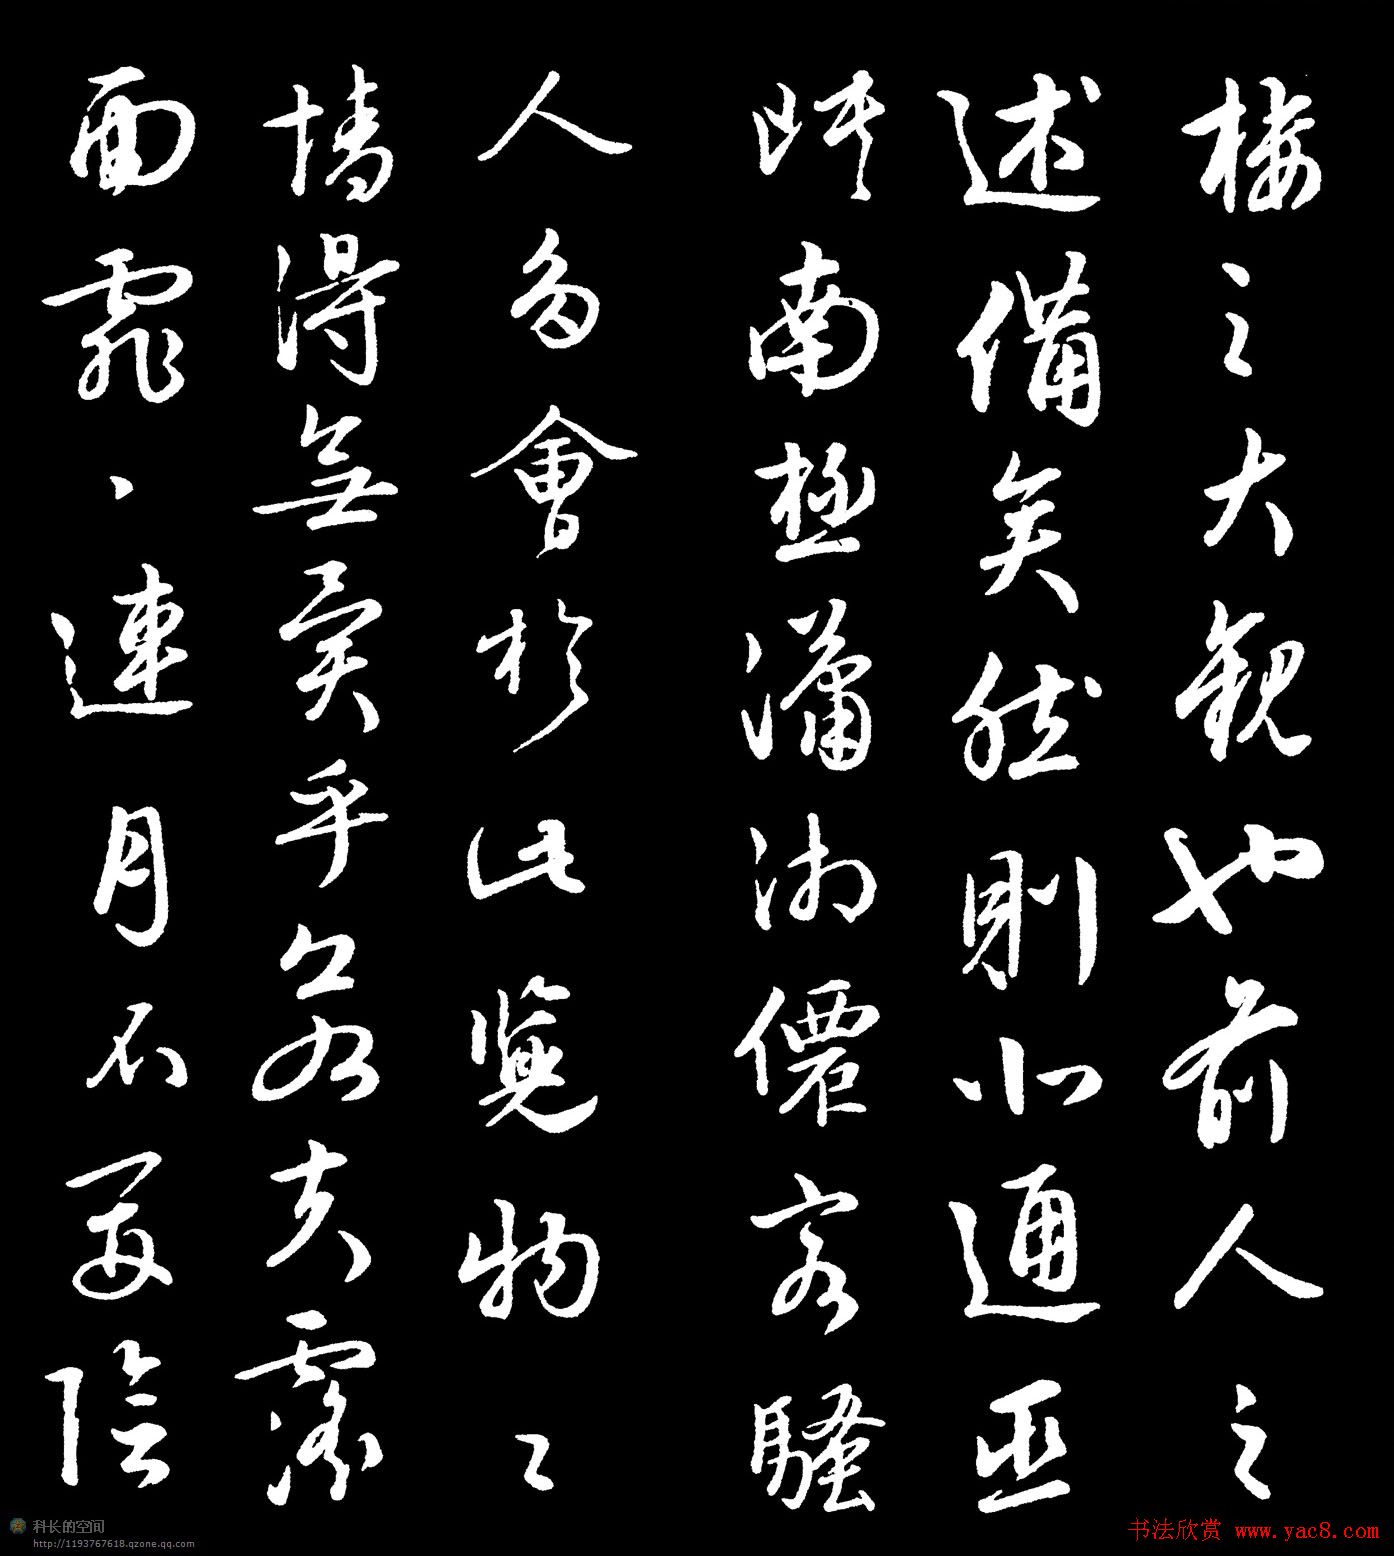 樓之大觀也前人之
述備矣然則北通巫
峽南極瀟湘僊客騷
人多會於此覽物之
情得無異乎若夫霪
雨霏、連月不開陰
科长的空间
http://1193767618.qzone.qq.com
书法欣赏 www.yac8.com